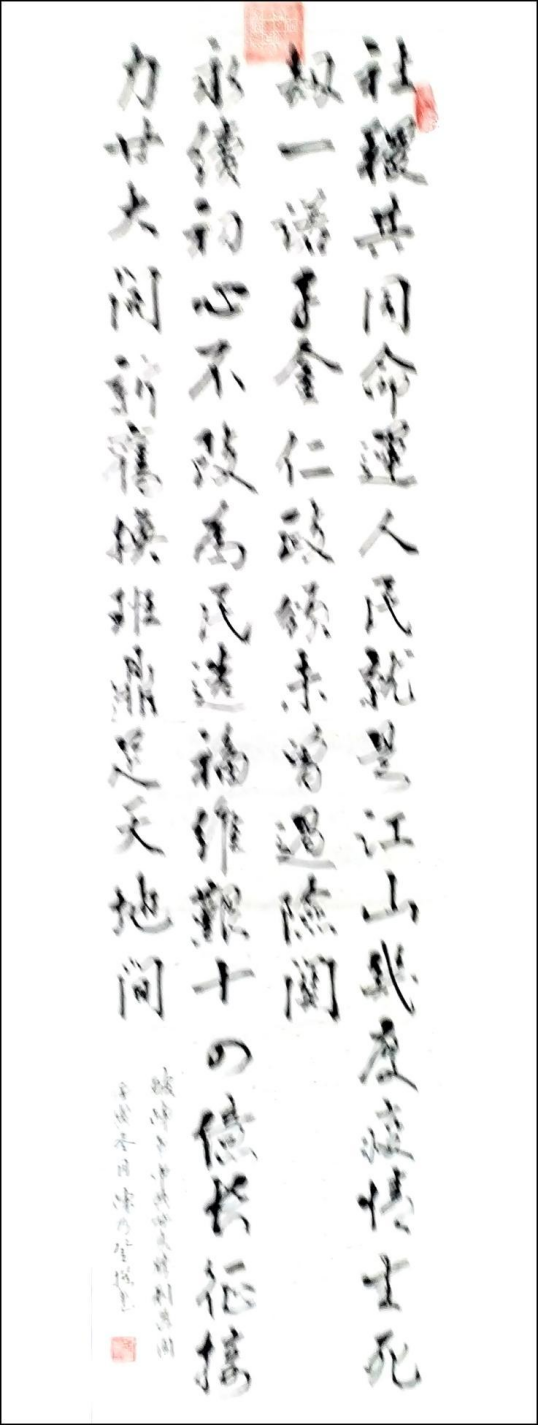 社稷共同命運人民就是江山幾度疫情生死
劫一諾千金仁政頒未曾遇險關
永續初心不改為民造福維艱十四億長征接
力廿大開新舊換班鼎足天地間